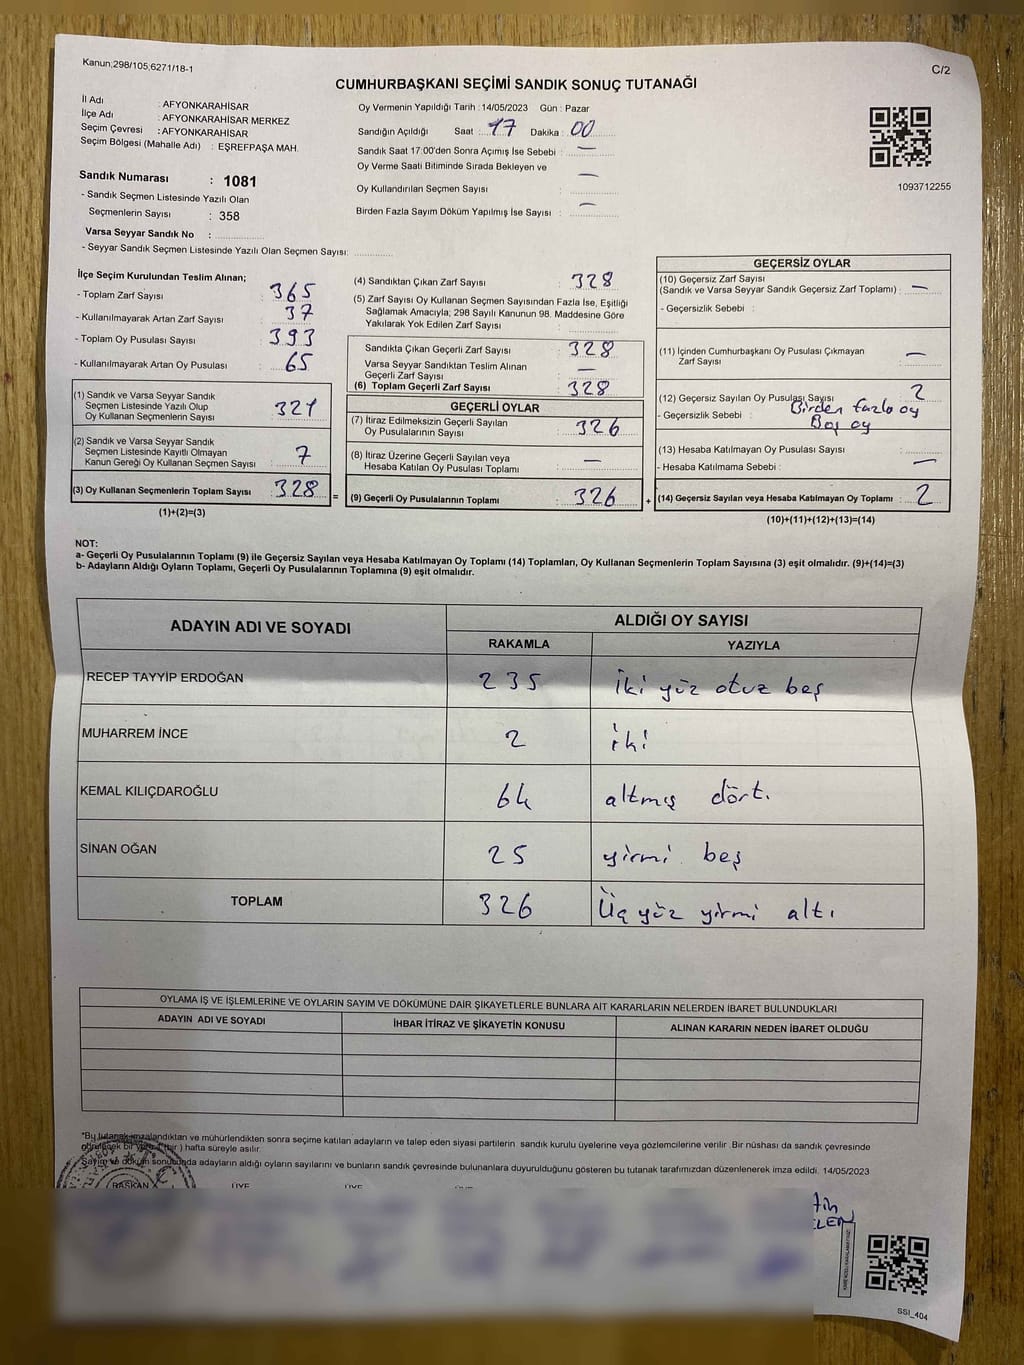 Kanun;298/105,6271/18-1
C/2
CUMHURBAŞKANI SEÇİMİ SANDIK SONUÇ TUTANAĞI
İl Adı : AFYONKARAHİSAR
İlçe Adı : AFYONKARAHİSAR MERKEZ
Seçim Çevresi : AFYONKARAHİSAR
Seçim Bölgesi (Mahalle Adı) : EŞREFPAŞA MAH.
Sandık Numarası : 1081
- Sandık Seçmen Listesinde Yazılı Olan
Seçmenlerin Sayısı : 358
Varsa Seyyar Sandık No :
- Seyyar Sandık Seçmen Listesinde Yazılı Olan Seçmen Sayısı:
Oy Vermenin Yapıldığı Tarih : 14/05/2023 Gün : Pazar
Sandığın Açıldığı Saat : 17 Dakika : 00
Sandık Saat 17:00'den Sonra Açımış İse Sebebi : —
Oy Verme Saati Bitiminde Sırada Bekleyen ve
Oy Kullandırılan Seçmen Sayısı : —
Birden Fazla Sayım Döküm Yapılmış İse Sayısı : —
1093712255
İlçe Seçim Kurulundan Teslim Alınan;
- Toplam Zarf Sayısı : 365
- Kullanılmayarak Artan Zarf Sayısı : 37
- Toplam Oy Pusulası Sayısı : 393
- Kullanılmayarak Artan Oy Pusulası : 65
(1) Sandık ve Varsa Seyyar Sandık
Seçmen Listesinde Yazılı Olup
Oy Kullanan Seçmenlerin Sayısı : 321
(2) Sandık ve Varsa Seyyar Sandık
Seçmen Listesinde Kayıtlı Olmayan
Kanun Gereği Oy Kullanan Seçmen Sayısı : 7
(3) Oy Kullanan Seçmenlerin Toplam Sayısı : 328 =
(1)+(2)=(3)
(4) Sandıktan Çıkan Zarf Sayısı : 328
(5) Zarf Sayısı Oy Kullanan Seçmen Sayısından Fazla İse, Eşitliği
Sağlamak Amacıyla; 298 Sayılı Kanunun 98. Maddesine Göre
Yakılarak Yok Edilen Zarf Sayısı :
Sandıkta Çıkan Geçerli Zarf Sayısı : 328
Varsa Seyyar Sandıktan Teslim Alınan
Geçerli Zarf Sayısı : —
(6) Toplam Geçerli Zarf Sayısı : 328
GEÇERLİ OYLAR
(7) İtiraz Edilmeksizin Geçerli Sayılan
Oy Pusulalarının Sayısı : 326
(8) İtiraz Üzerine Geçerli Sayılan veya
Hesaba Katılan Oy Pusulası Toplamı : —
(9) Geçerli Oy Pusulalarının Toplamı : 326 +
GEÇERSİZ OYLAR
(10) Geçersiz Zarf Sayısı
(Sandık ve Varsa Seyyar Sandık Geçersiz Zarf Toplamı) : —
- Geçersizlik Sebebi :
(11) İçinden Cumhurbaşkanı Oy Pusulası Çıkmayan
Zarf Sayısı : —
(12) Geçersiz Sayılan Oy Pusulası Sayısı : 2
- Geçersizlik Sebebi : Birden fazla oy
Boş oy
(13) Hesaba Katılmayan Oy Pusulası Sayısı :
- Hesaba Katılmama Sebebi : —
(14) Geçersiz Sayılan veya Hesaba Katılmayan Oy Toplamı : 2
(10)+(11)+(12)+(13)=(14)
NOT:
a- Geçerli Oy Pusulalarının Toplamı (9) ile Geçersiz Sayılan veya Hesaba Katılmayan Oy Toplamı (14) Toplamları, Oy Kullanan Seçmenlerin Toplam Sayısına (3) eşit olmalıdır. (9)+(14)=(3)
b- Adayların Aldığı Oyların Toplamı, Geçerli Oy Pusulalarının Toplamına (9) eşit olmalıdır.
ADAYIN ADI VE SOYADI ALDIĞI OY SAYISI
RAKAMLA YAZIYLA
RECEP TAYYİP ERDOĞAN 235 İki yüz otuz beş
MUHARREM İNCE 2 iki
KEMAL KILIÇDAROĞLU 64 altmış dört.
SİNAN OĞAN 25 yirmi beş
TOPLAM 326 Üç yüz yirmi altı
OYLAMA İŞ VE İŞLEMLERİNE VE OYLARIN SAYIM VE DÖKÜMÜNE DAİR ŞİKAYETLERLE BUNLARA AİT KARARLARIN NELERDEN İBARET BULUNDUKLARI
ADAYIN ADI VE SOYADI İHBAR İTİRAZ VE ŞİKAYETİN KONUSU ALINAN KARARIN NEDEN İBARET OLDUĞU
"Bu tutanak imzalandıktan ve mühürlendikten sonra seçime katılan adayların ve talep eden siyasi partilerin sandık kurulu üyelerine veya gözlemcilerine verilir .Bir nüshası da sandık çevresinde
hafta süreyle asılır.
Sayım ve döküm sonucunda adayların aldığı oyların sayılarını ve bunların sandık çevresinde bulunanlara duyurulduğunu gösteren bu tutanak tarafımızdan düzenlenerek imza edildi. 14/05/2023
BAŞKAN ÜYE ÜYE ÜYE
SSI_404